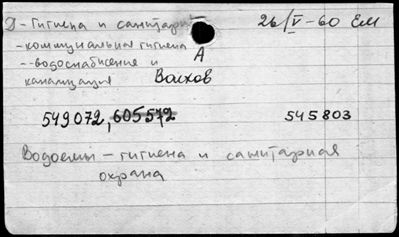 Д - Гигиена и санитария 26/V-60 ЕМ
- коммунальная гигиена А
-- водоснабжение и
канализация Волхов
549072, 605572 545803
Водоемы - гигиена и санитарная
охрана